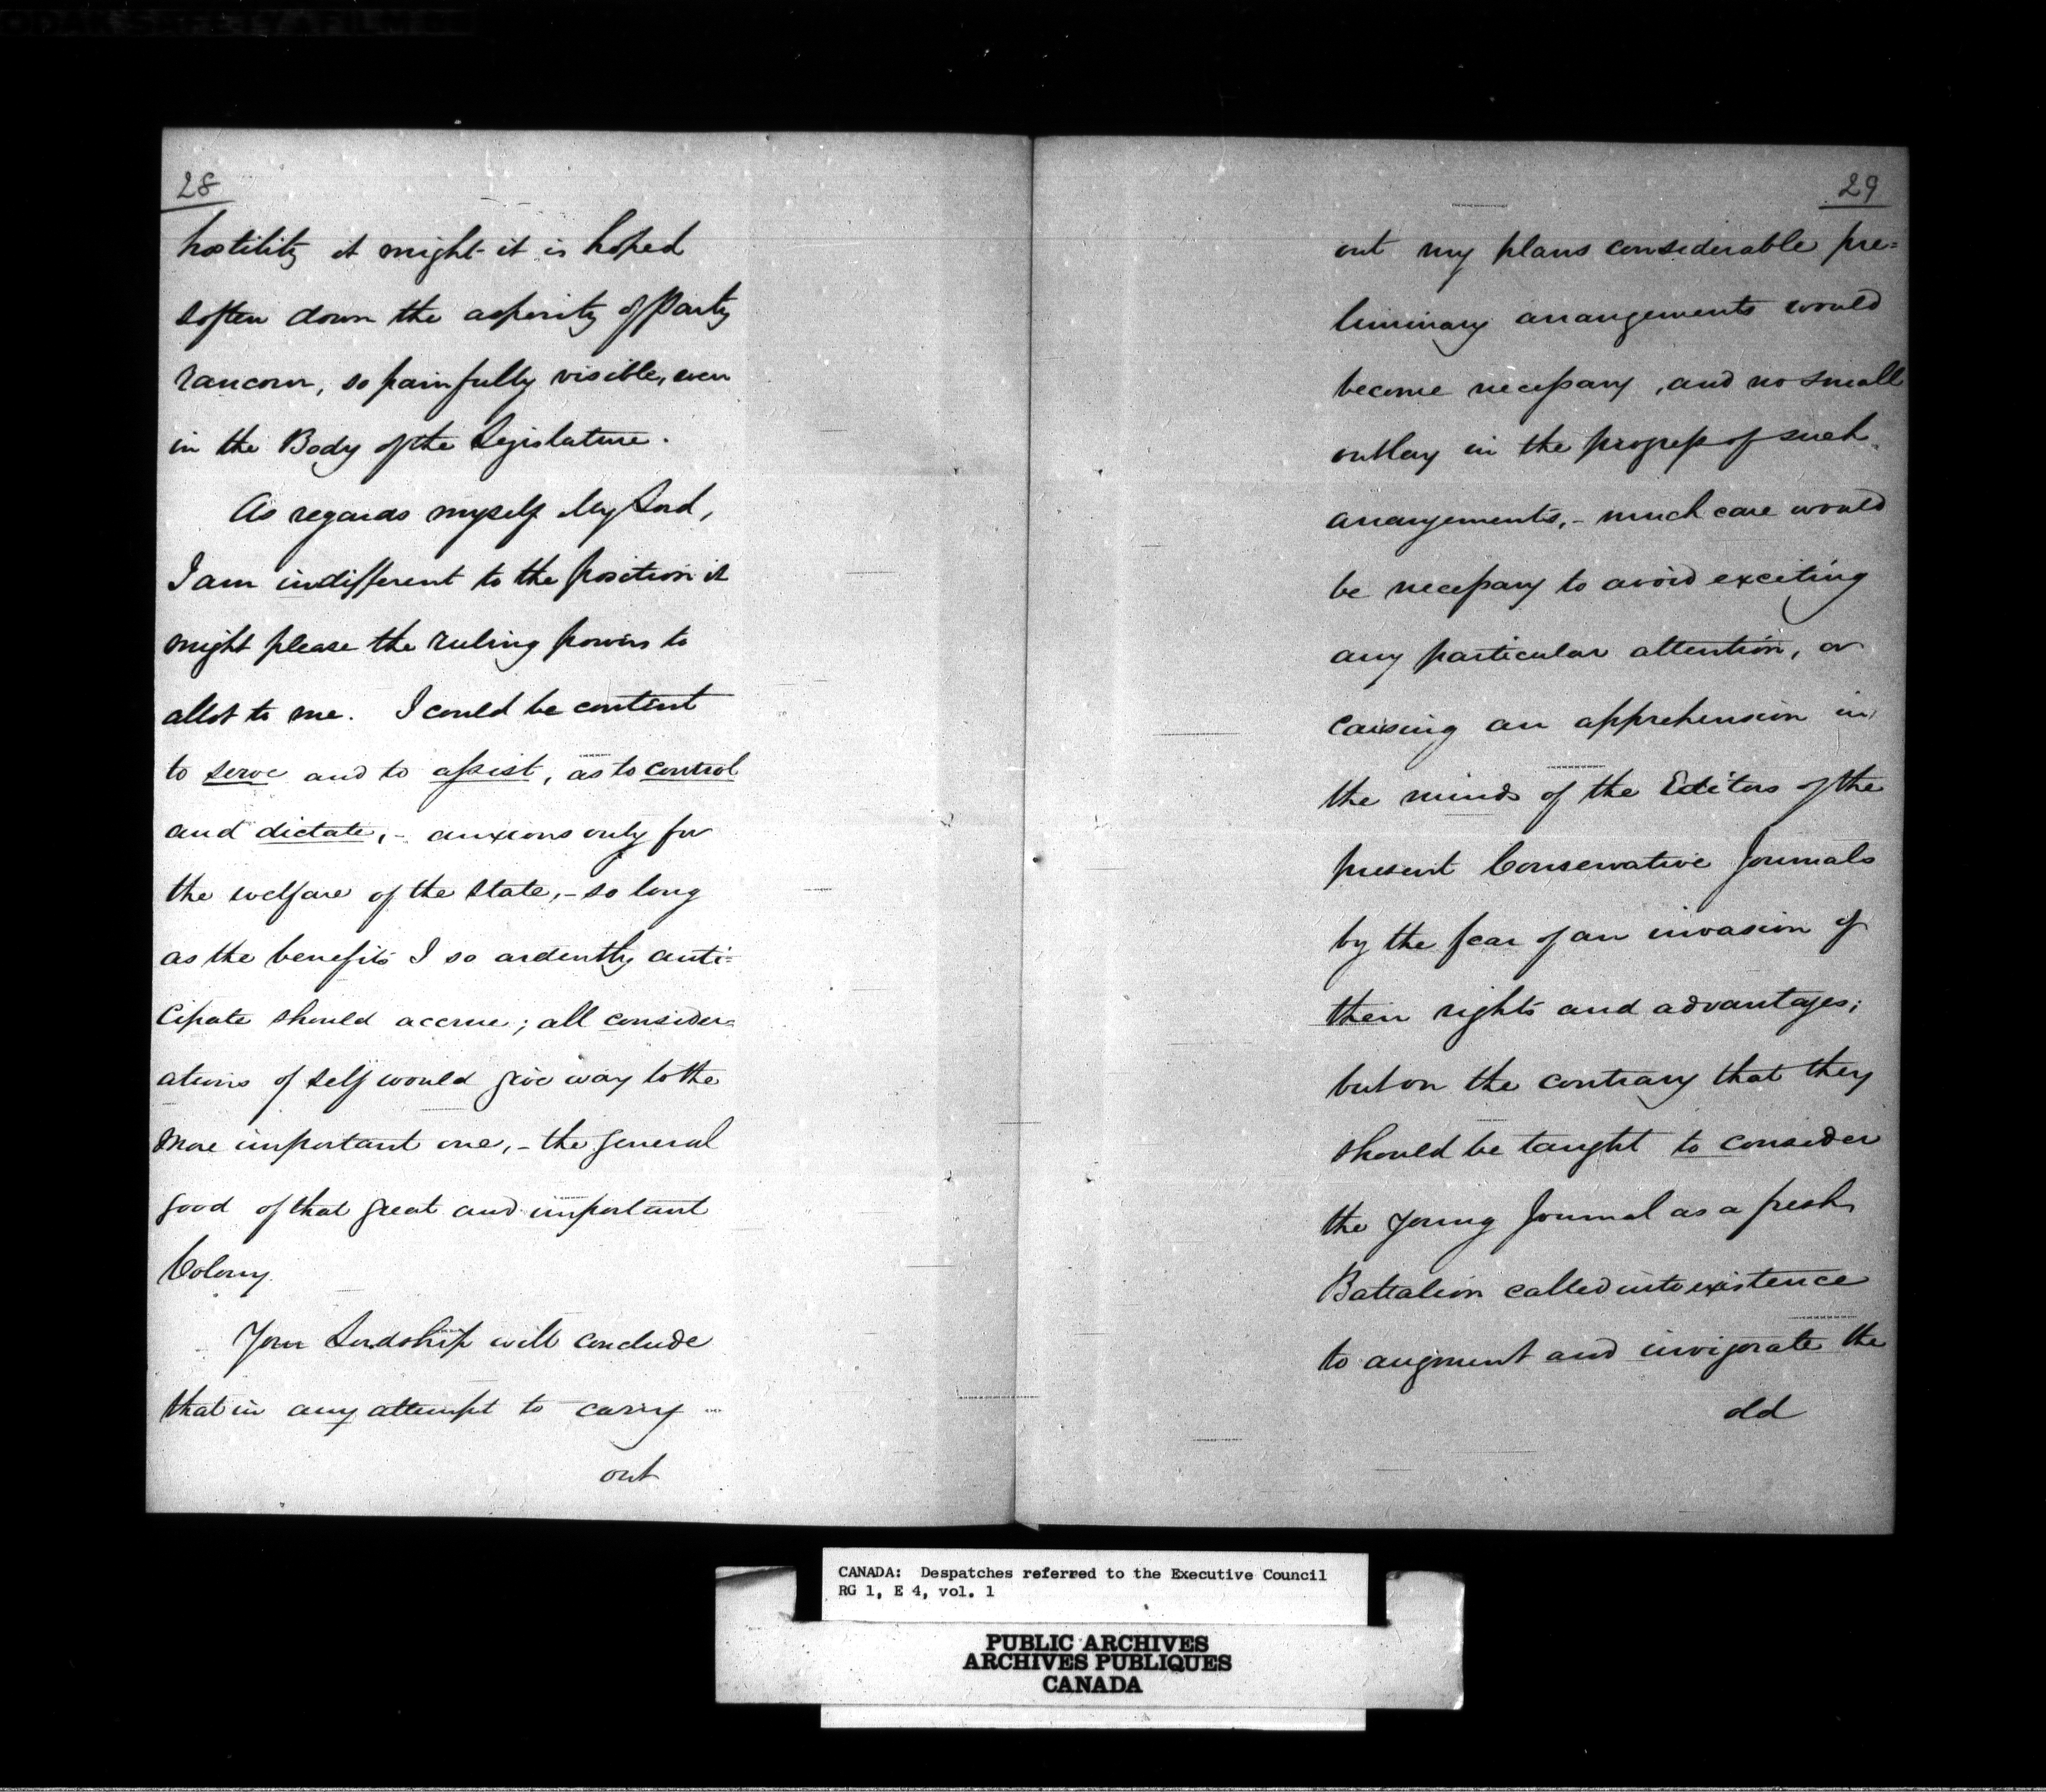 28
hostility it might it is hoped
soften down the asperity of Party
rancour, so painfully visible, even
in the Body of the Legislature.
As regards myself My Lord,
I am indifferent to the position it
might please the ruling powers to
allot to me. I could be content
to serve and to assist, as to control
and dictate, - anxious only for
the welfare of the State, - so long
as the benefits I so ardently anti=
cipate should accrue; all consider=
ations of self would give way to the
more important one, - the general
good of that great and important
Colony.
Your Lordship will conclude
that in any attempt to carry
out
29
out my plans considerable pre=
liminary arrangements would
become necessary, and no small
outlay in the progress of such
arrangements, - much care would
be necessary to avoid exciting
any particular attention, or
causing an apprehension in
the minds of the Editors of the
present Conservative Journals
by the fear of an invasion of
their rights and advantages;
but on the contrary that they
should be taught to consider
the young Journal as a fresh
Battalion called into existence
to augment and invigorate the
old
CANADA: Despatches referred to the Executive Council
RG 1, E 4, vol. 1
PUBLIC ARCHIVES
ARCHIVES PUBLIQUES
CANADA